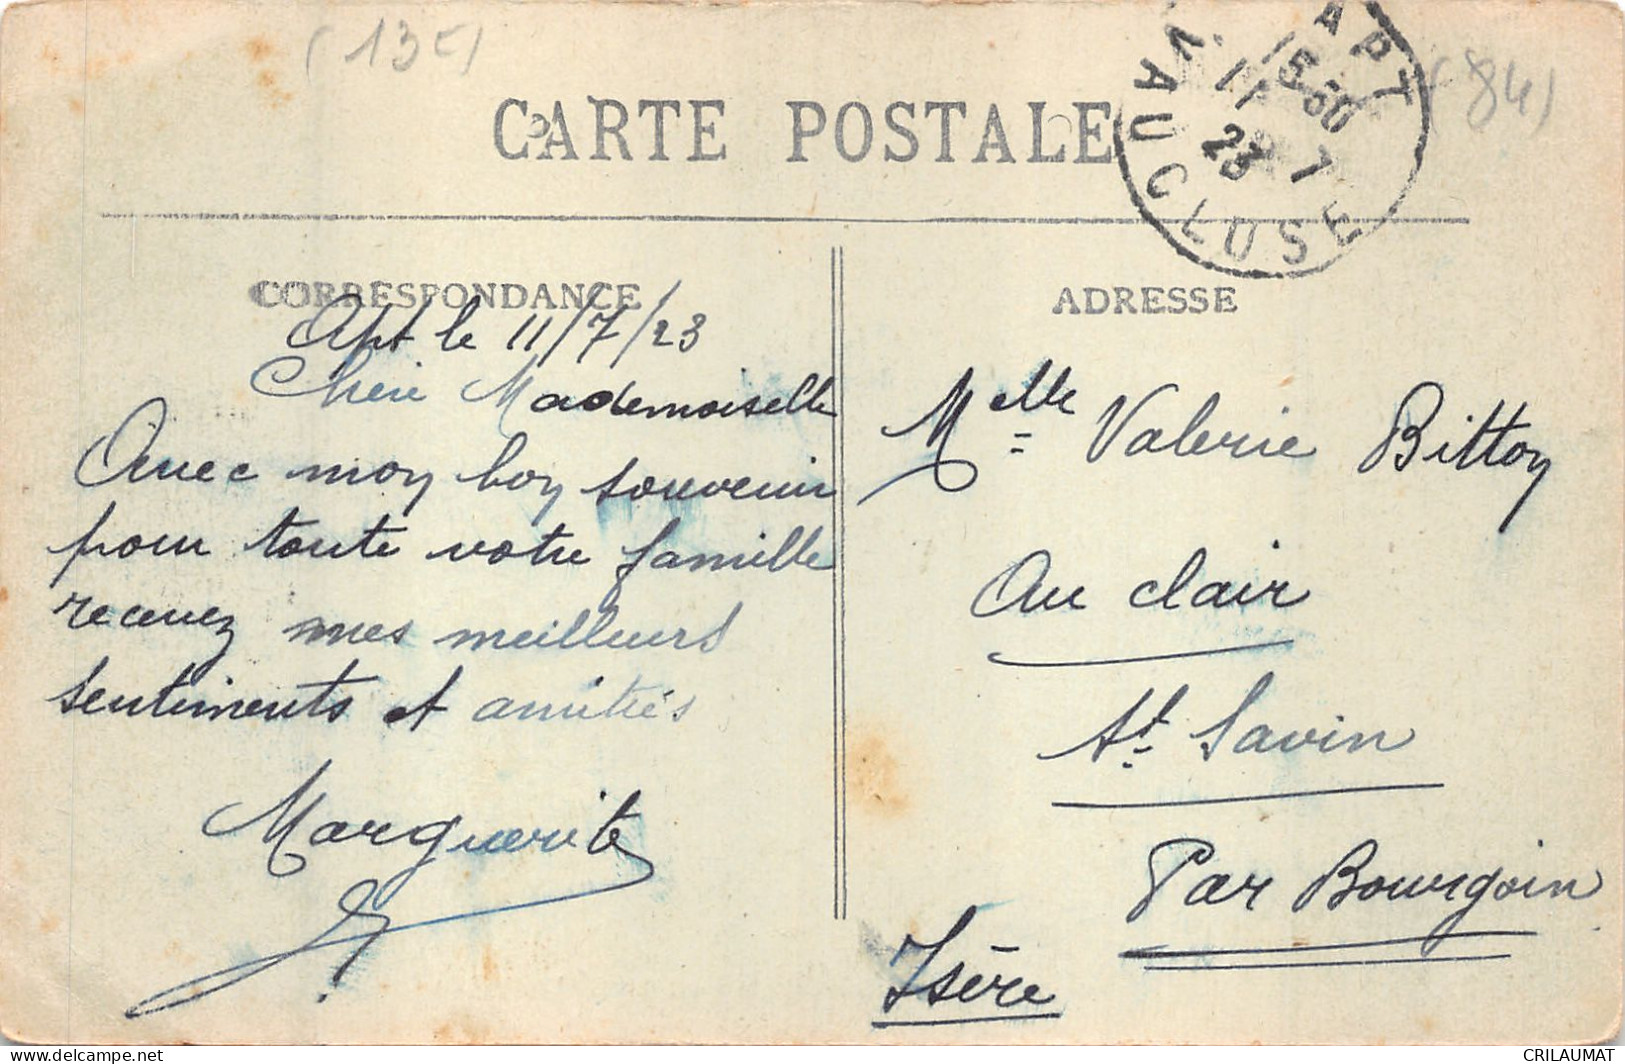 (13€)
(84)
CARTE POSTALE
APT
15 30
11 - 7
23
VAUCLUSE
CORRESPONDANCE
Apt le 11/7/23
Chère Mademoiselle
Avec moy boy souvenir
pour toute votre famille
recevez mes meilleurs
sentiments et amitiés
Marguerite
ADRESSE
Melle Valerie Bittoy
Au clair
St. Savin
Par Bourgoin
Isère
delcampe.net
CRILAUMAT